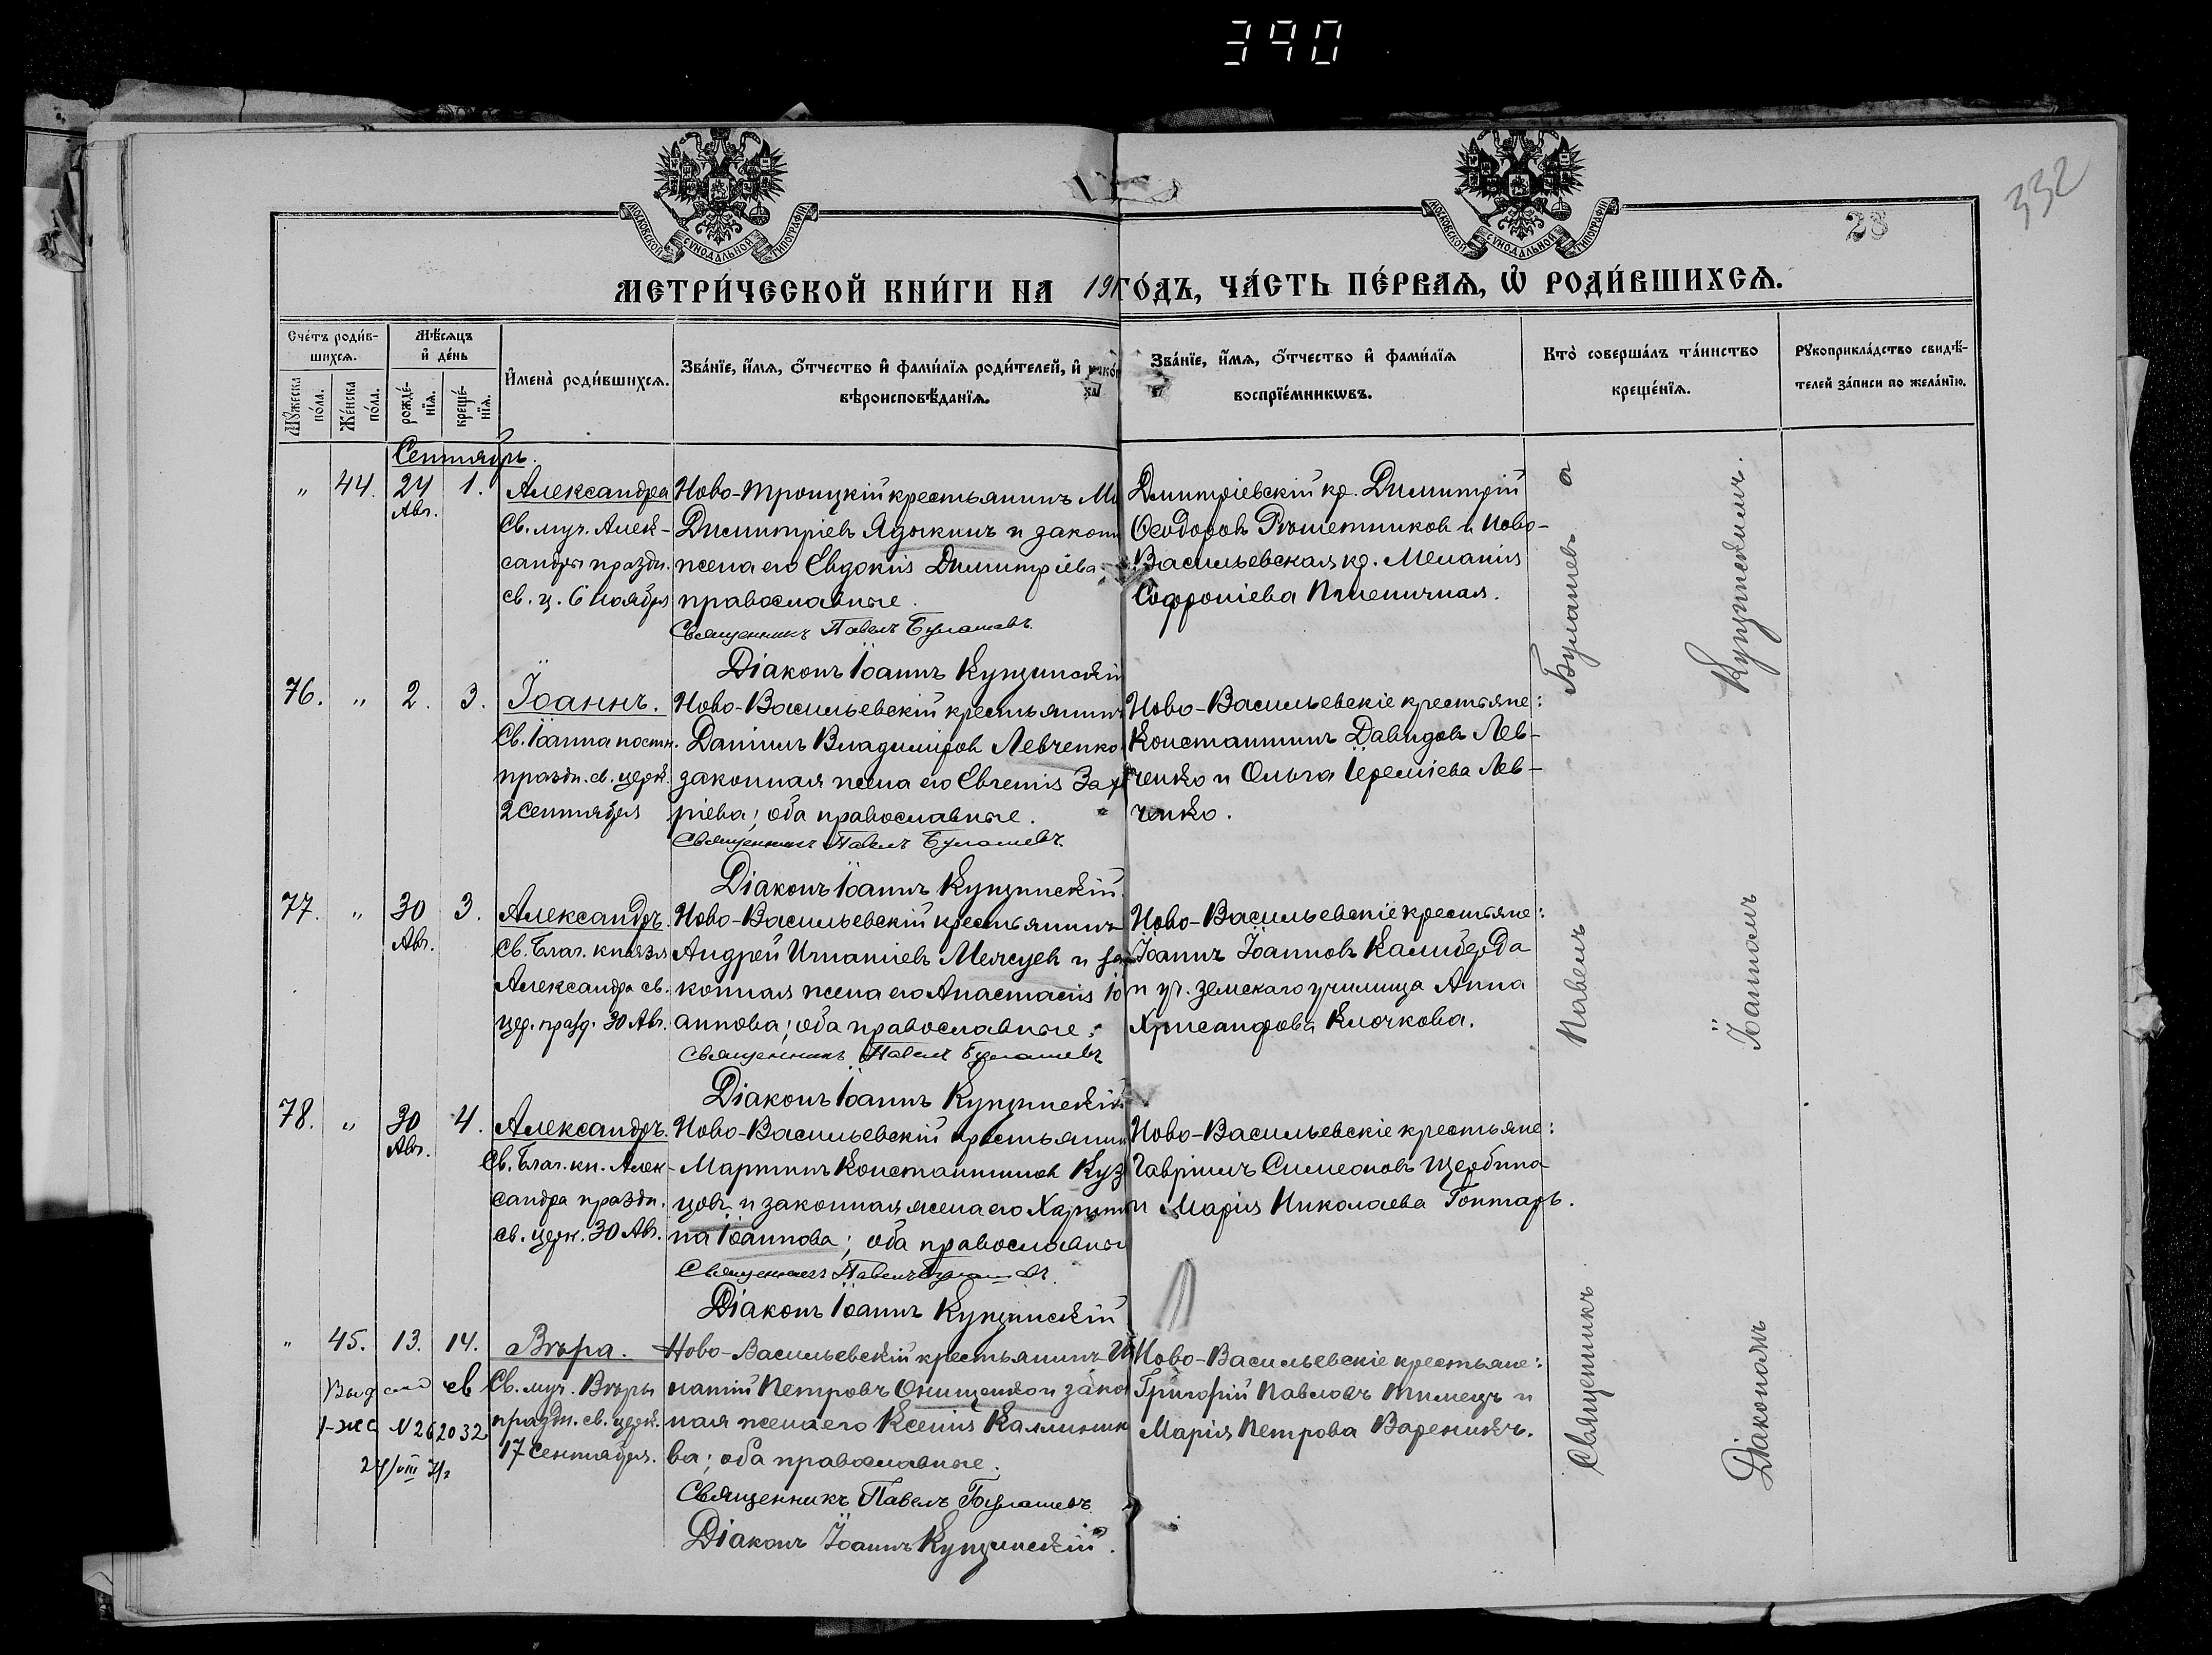 390
332
28
МОСКОВСКОЙ СѴНОДАЛЬНОЙ ТИПОГРАФІИ
МОСКОВСКОЙ СѴНОДАЛЬНОЙ ТИПОГРАФІИ
МЕТРИ́ЧЕСКОЙ КНИ́ГИ НА 191 ГО́ДЪ, ЧА́СТЬ ПЕ́РВАѦ, Ѡ РОДИ́ВШИХСѦ.
Сче́тъ роди́в-
шихсѧ.
Мꙋ́жеска по́ла.
Же́нска по́ла.
Мѣ́сѧцъ и де́нь
рожде́-нїѧ.
креще́-нїѧ.
И҆мена̀ роди́вшихсѧ.
Зва́нїе, и҆́мѧ, ѻ҆́тчество и҆ фамил́їѧ роди́телей, и҆
вѣроисповѣ́данїѧ.
Зва́нїе, и҆́мѧ, ѻ҆́тчество и҆ фами́лїѧ
воспрїе́мникѡвъ.
Кто̀ соверша́лъ та́инство
креще́нїѧ.
Рꙋкоприкла́дство свидѣ́-
телей за́писи по жела́нїю.
Сентябрь.
" 44. 24 Авг. 1. Александра
Св. муч. Алек-
сандры праздн.
св. ц. 6 ноября
Ново-Троицкій крестьянинъ
Димитріевъ Ядыкинъ и законн
жена его Евдокія Димитріева
православные.
Священникъ Павелъ Булашевъ.
Діаконъ Іоаннъ Купчинскій
Дмитріевскій кр. Димитрій
Ѳеодоровъ Рѣшетниковъ и Ново-
Васильевская кр. Меланія
Софроніева Пшеничная.
76. " 2. 3. Іоаннъ.
Св. Іоанна постн.
праздн. св. церк.
2 Сентября
Ново-Васильевскій крестьянинъ
Даніилъ Владиміровъ Левченко
законная жена его Евгенія Заха
ріева; оба православные.
Священникъ Павелъ Булашевъ.
Діаконъ Іоаннъ Купчинскій.
Ново-Васильевскіе крестьяне:
Константинъ Давидовъ Лев-
ченко и Ольга Іереміева Лев-
ченко.
77. " 30 Авг. 3. Александръ.
Св. Благ. князя
Александра св.
цер. празд. 30 Авг.
Ново-Васильевскій крестьянинъ
Андрей Игнатіевъ Мелсуев и за
конная жена его Анастасія Іо
аннова; оба православные.
Священникъ Павелъ Булашевъ
Діаконъ Іоаннъ Купчинскій
Ново-Васильевскіе крестьяне:
Іоаннъ Іоанновъ Калиберда
и уч. земскаго училища Анна
Хрисанфова Клочкова.
78. " 30 Авг. 4. Александръ.
Св. Благ. кн. Алек-
сандра праздн.
св. церк. 30 Авг.
Ново-Васильевскій крестьянин
Мартинъ Константиновъ Куз
цовъ и законная жена его Харити
на Іоаннова; оба православны
Священникъ Павелъ Булашевъ.
Діаконъ Іоаннъ Купчинскій
Ново-Васильевскіе крестьяне:
Гавріилъ Симеоновъ Щербина
и Марія Николаева Гонтаръ.
" 45. 13. 14. Вѣра.
Св. муч. Вѣры
праздн. св. церк.
17 Сентября.
Ново-Васильевскій крестьянинъ Иг
натій Петровъ Онищенко и закон
ная жена его Ксенія Каллиник
ва; оба православные.
Священникъ Павелъ Булашевъ
Діаконъ Іоаннъ Купчинскій.
Ново-Васильевскіе крестьяне:
Григорій Павловъ Тимецъ и
Марія Петрова Вареникъ.
св
N 262032
Священникъ Павелъ Булашевъ
Діакономъ Іоанномъ Купчинскимъ.